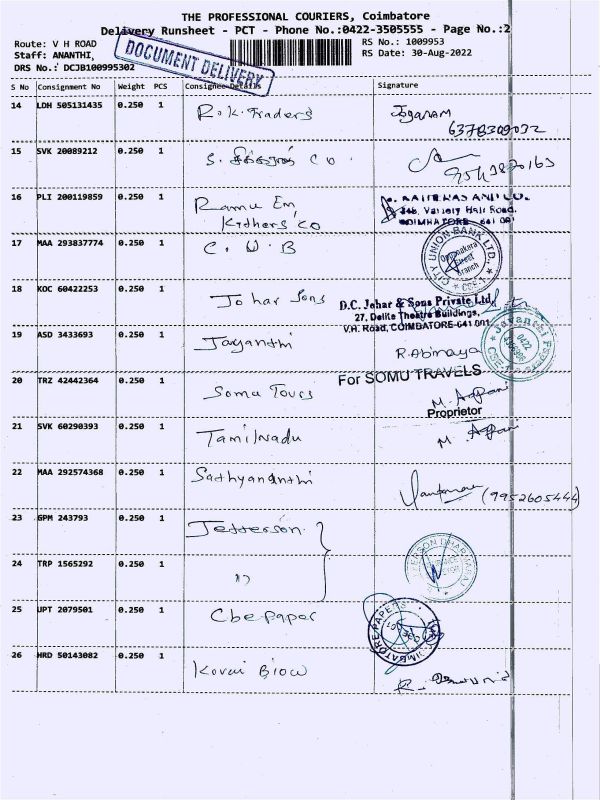 THE PROFESSIONAL COURIERS, Coimbatore
Delivery Runsheet - PCT - Phone No.:0422-3505555 - Page No.:2
Route: V H ROAD
Staff: ANANTHI,
DRS No.: DCJB100995302
DOCUMENT DELIVERY
RS No.: 1009953
RS Date: 30-Aug-2022
S No Consignment No Weight PCS Consignee Details Signature
14 LDH 505131435 0.250 1 R.K. Traders
15 SVK 20089212 0.250 1 S. CO.
16 PLI 200119859 0.250 1 Ramu Em
COIMBATORE - 641 001
17 MAA 293837774 0.250 1 C. U. B
CITY UNION BANK LTD.
Oppanakara Street Branch
CBE-1
18 KOC 60422253 0.250 1 Johar Sons
D.C. Johar & Sons Private Ltd,
27, Delite Theatre Buildings,
V.H. Road, COIMBATORE-641 001
19 ASD 3433693 0.250 1 Jayanthi R. Abinaya
20 TRZ 42442364 0.250 1 Somu Tours
For SOMU TRAVELS
Proprietor
21 SVK 60290393 0.250 1 Tamilnadu
22 MAA 292574368 0.250 1 Sathyananthi (9952605444)
23 GPM 243793 0.250 1 Jefferson
24 TRP 1565292 0.250 1 "
25 UPT 2079501 0.250 1 Cbe paper
COIMBATORE PAPERS
26 HRD 50143082 0.250 1 Kovai